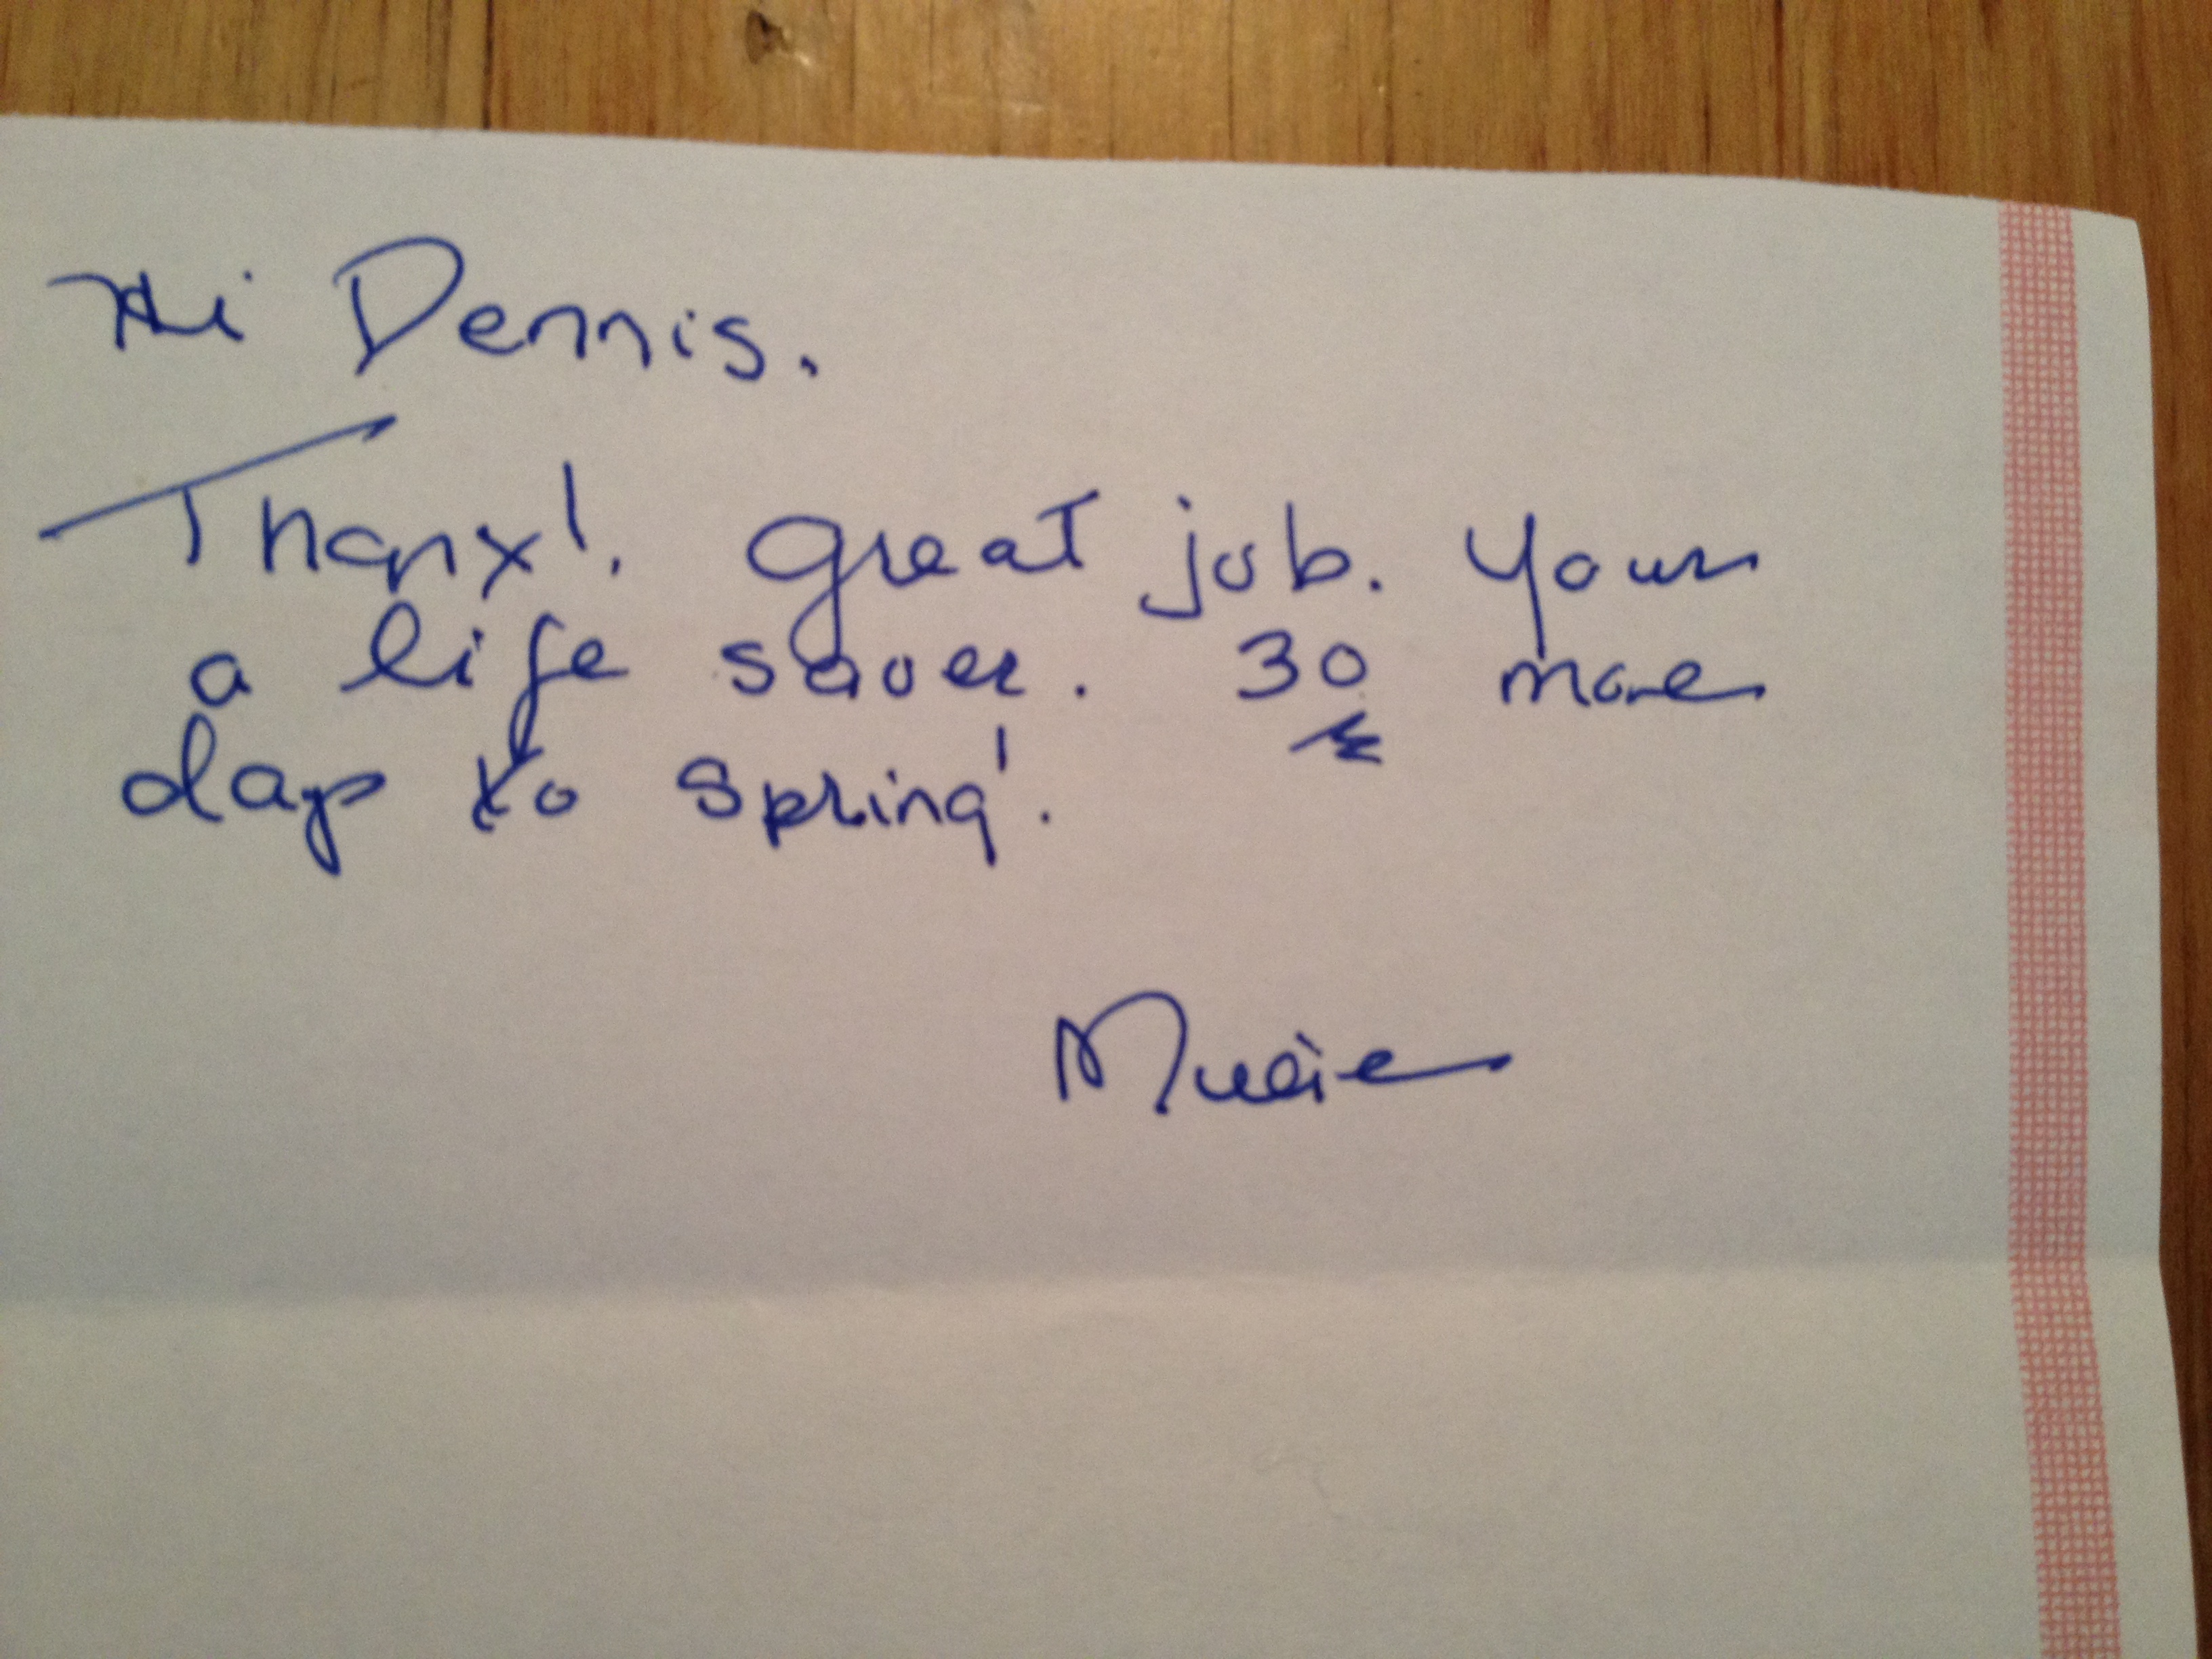 Hi Dennis.
Thanx! Great job. Your
a life saver. 30 more
days to spring!